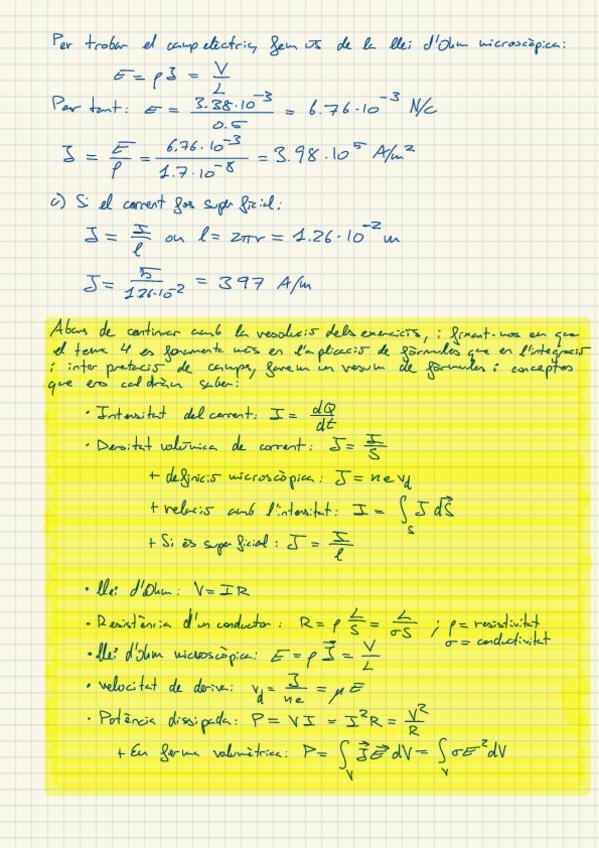 Per trobar el camp elèctric, fem ús de la llei d'Ohm microscòpica:
E = ρJ = V/L
Per tant: E = 3.38·10⁻³/0.5 = 6.76·10⁻³ N/C
J = E/ρ = 6.76·10⁻³/1.7·10⁻⁸ = 3.98·10⁵ A/m²
c) Si el corrent fos superficial:
J = I/l on l = 2πr = 1.26·10⁻² m
J = 5/1.26·10⁻² = 397 A/m
Abans de continuar amb la resolució dels exercicis, i fixant-nos en que
el tema 4 es fonamenta més en l'aplicació de fórmules que en l'integració
i interpretació de camps, farem un resum de fórmules i conceptes
que ens caldran saber:
· Intensitat del corrent: I = dQ/dt
· Densitat volúmica de corrent: J = I/S
+ definició microscòpica: J = nev_d
+ relació amb l'intensitat: I = ∫_S J dS⃗
+ Si és superficial: J = I/l
· Llei d'Ohm: V = IR
· Resistència d'un conductor: R = ρ L/S = L/σS ; ρ = resistivitat
σ = conductivitat
· Llei d'Ohm microscòpica: E = ρJ⃗ = V/L
· velocitat de deriva: v_d = J/ne = μE
· Potència dissipada: P = VI = I²R = V²/R
+ En forma volumètrica: P = ∫_V J⃗E⃗ dV = ∫_V σE² dV